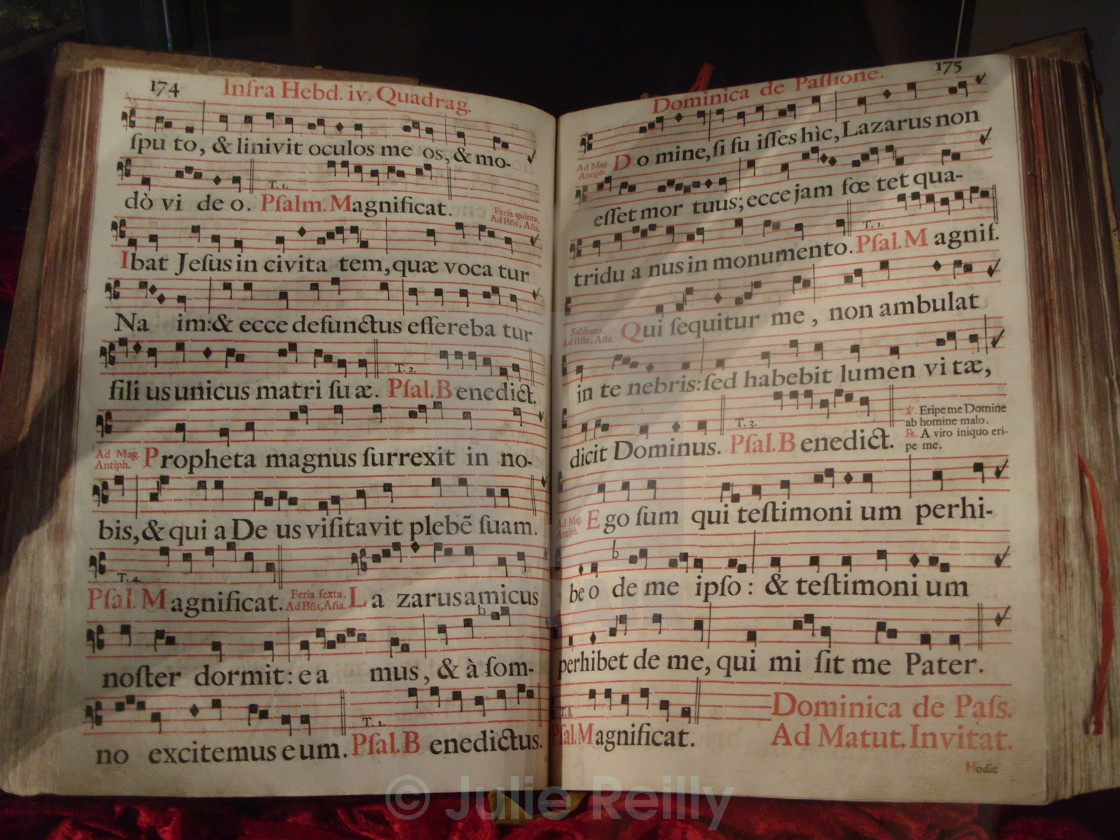 174
Infra Hebd. iv. Quadrag.
ſpu to, & linivit oculos me os, & mo-
T. 1.
dò vi de o. Pſalm. Magnificat.
Feria quinta,
Ad Bñs, Aña.
Ibat Jeſus in civita tem, quæ voca tur
Na im: & ecce defunctus effereba tur
T. 2.
fili us unicus matri ſu æ. Pſal. B enedict.
Ad Mag.
Antiph.
Propheta magnus ſurrexit in no-
bis, & qui a De us viſitavit plebē ſuam.
T. 4.
Pſal. M agnificat.
Feria ſexta.
Ad Bñs, Aña.
La zarus amicus
noſter dormit: e a mus, & à ſom-
T. 1.
no excitemus eum. Pſal. B enedictus.
175
Dominica de Paſſione.
Ad Mag.
Antiph.
D o mine, ſi fu iſſes hìc, Lazarus non
eſſet mor tuus; ecce jam fœ tet qua-
T. 1.
tridu a nus in monumento. Pſal. M agnif.
Sabbato
Ad Bñs, Aña
Qui ſequitur me, non ambulat
in te nebris: ſed habebit lumen vi tæ,
T. 3.
dicit Dominus. Pſal. B enedict.
℣. Eripe me Domine
ab homine malo.
℟. A viro iniquo eri-
pe me.
Ad Mag.
Antiph.
E go ſum qui teſtimoni um perhi-
be o de me ipſo: & teſtimoni um
perhibet de me, qui mi ſit me Pater.
T. 1.
Pſal. M agnificat.
Dominica de Paſs.
Ad Matut. Invitat.
Hodie
© Julie Reilly